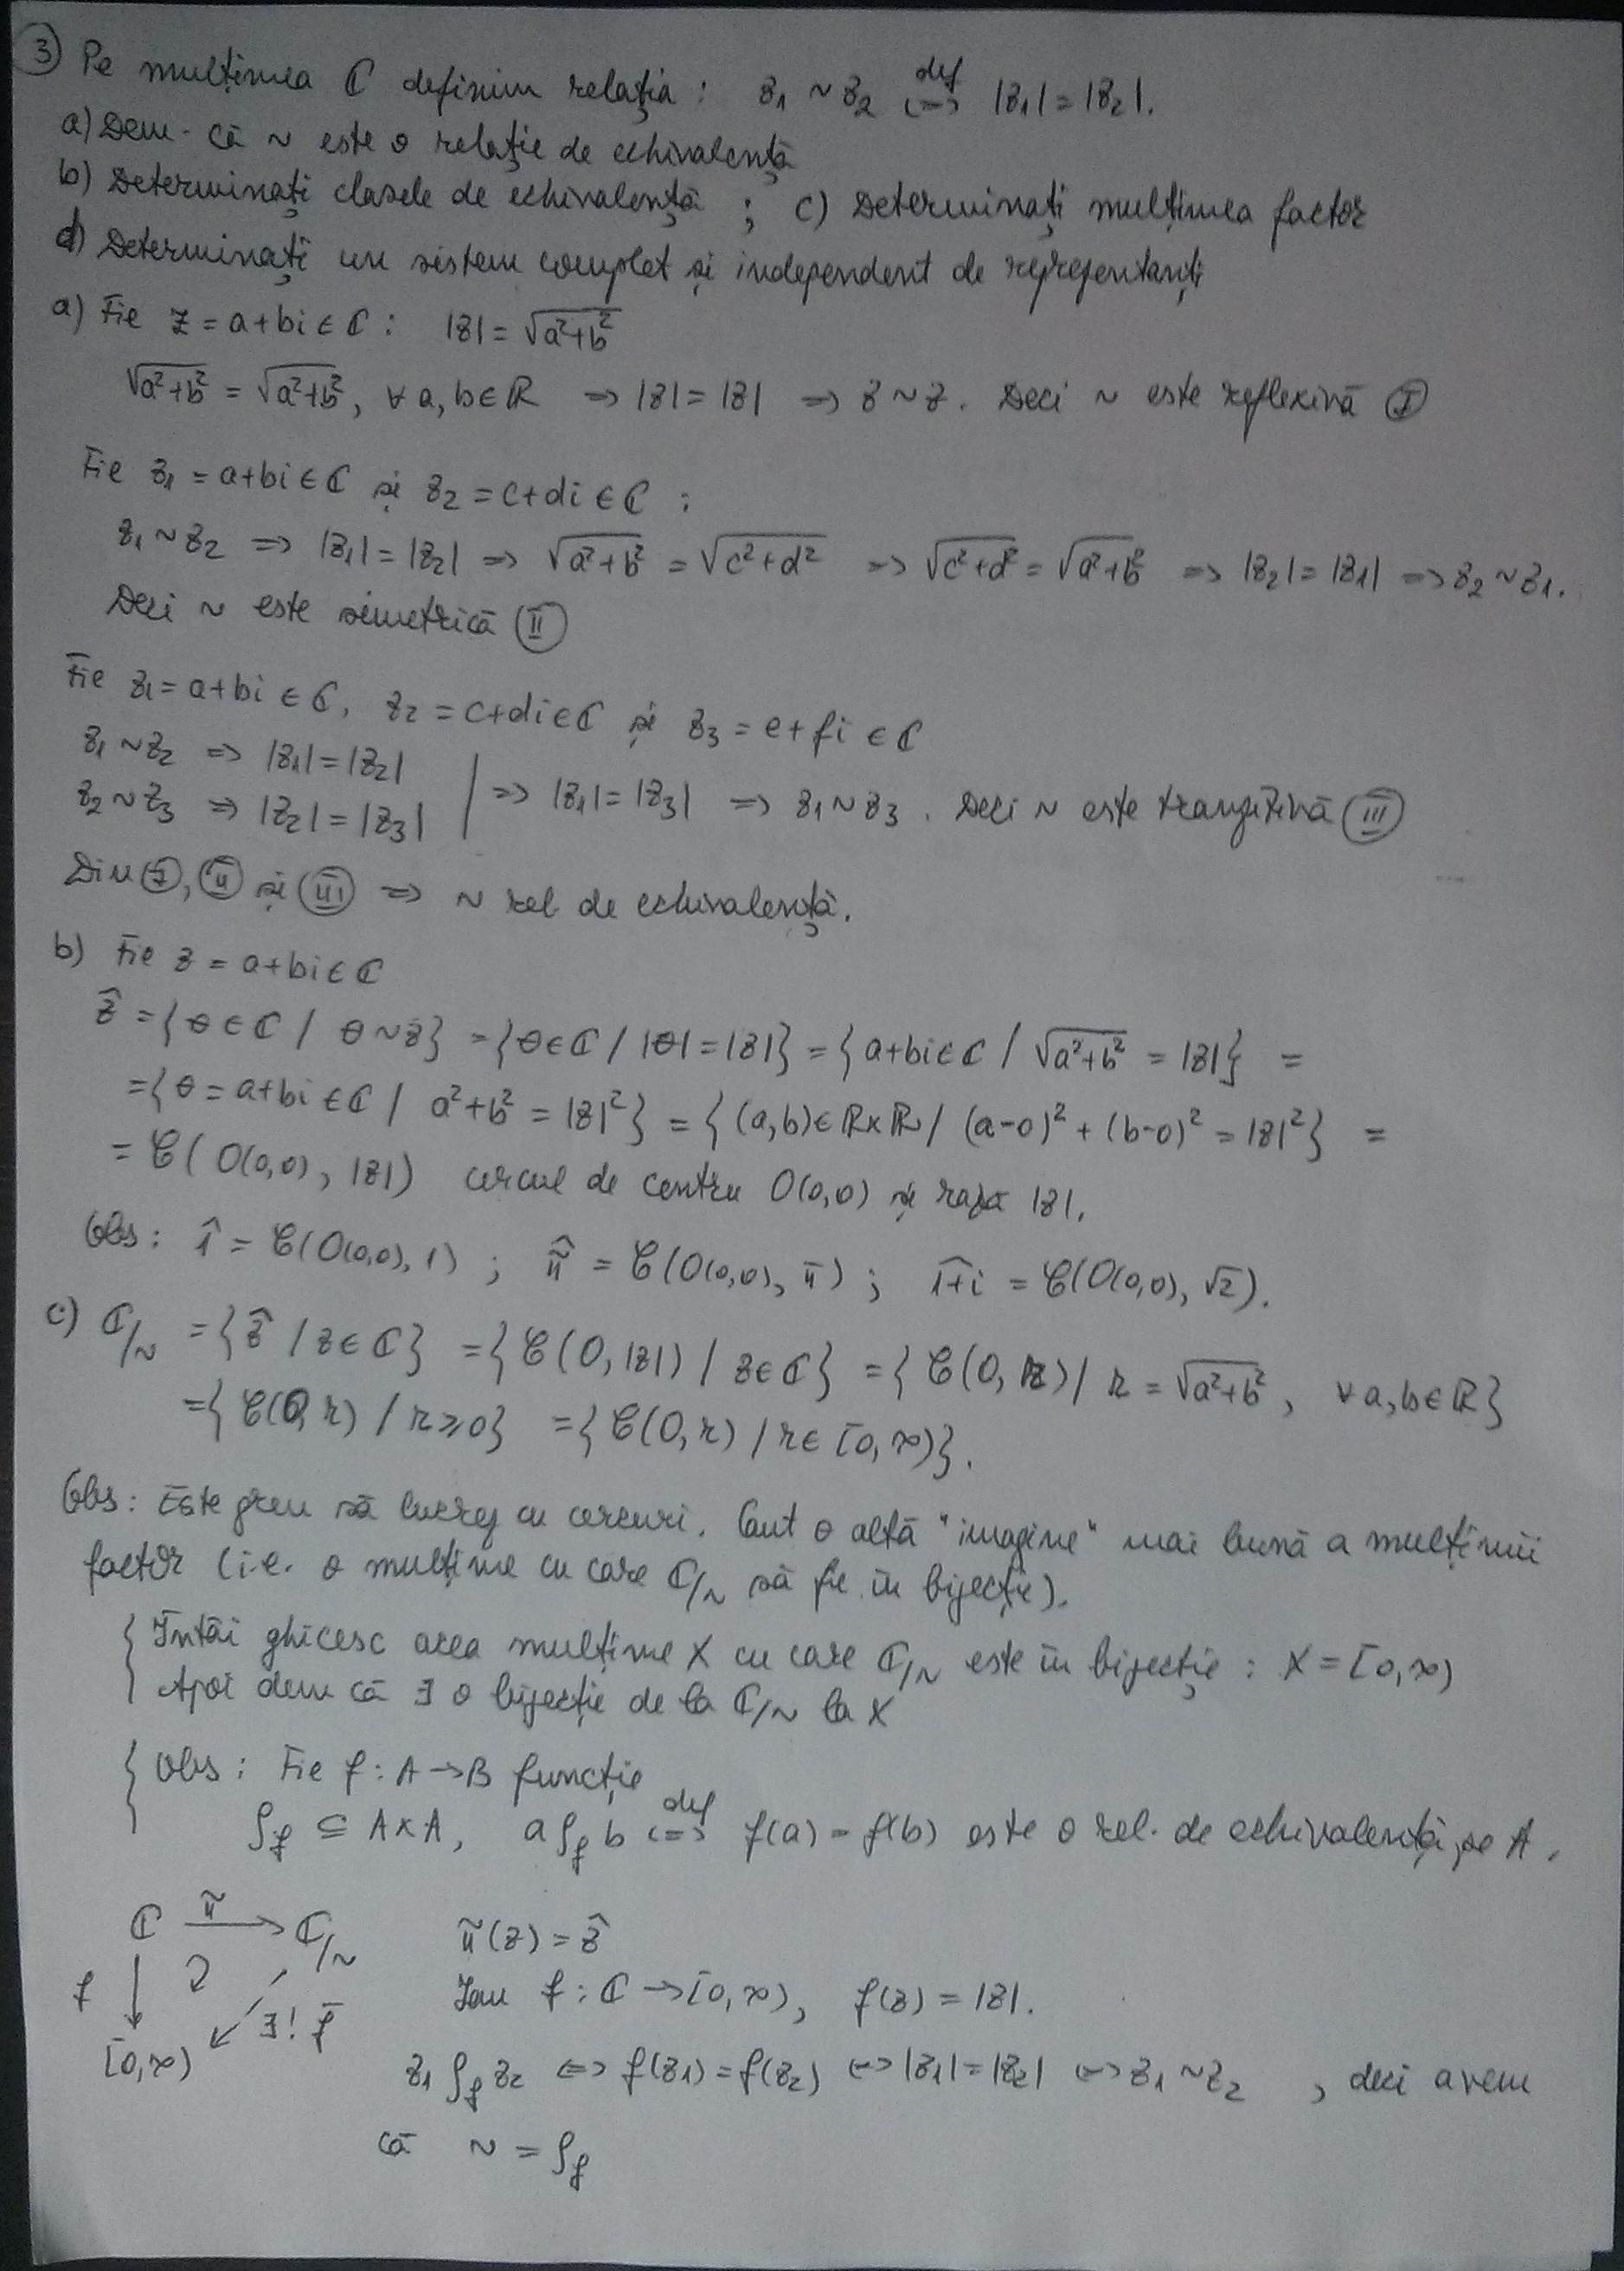 ③ Pe mulțimea ℂ definim relația: z₁ ~ z₂ ⟺(def) |z₁| = |z₂|.
a) Dem. că ~ este o relație de echivalență
b) Determinați clasele de echivalență ; c) Determinați mulțimea factor
d) Determinați un sistem complet și independent de reprezentanți
a) Fie z = a+bi ∈ ℂ : |z| = √(a²+b²)
√(a²+b²) = √(a²+b²), ∀ a, b ∈ ℝ ⇒ |z| = |z| ⇒ z ~ z. Deci ~ este reflexivă Ⓘ
Fie z₁ = a+bi ∈ ℂ și z₂ = c+di ∈ ℂ :
z₁ ~ z₂ ⇒ |z₁| = |z₂| ⇒ √(a²+b²) = √(c²+d²) ⇒ √(c²+d²) = √(a²+b²) ⇒ |z₂| = |z₁| ⇒ z₂ ~ z₁.
Deci ~ este simetrică (II)
Fie z₁ = a+bi ∈ ℂ, z₂ = c+di ∈ ℂ și z₃ = e+fi ∈ ℂ
z₁ ~ z₂ ⇒ |z₁| = |z₂|
z₂ ~ z₃ ⇒ |z₂| = |z₃| | ⇒ |z₁| = |z₃| ⇒ z₁ ~ z₃. Deci ~ este tranzitivă (III)
Din (I), (II) și (III) ⇒ ~ rel. de echivalență.
b) Fie z = a+bi ∈ ℂ
ẑ = {θ ∈ ℂ / θ ~ z} = {θ ∈ ℂ / |θ| = |z|} = {a+bi ∈ ℂ / √(a²+b²) = |z|} =
= {θ = a+bi ∈ ℂ / a²+b² = |z|²} = {(a,b) ∈ ℝ×ℝ / (a-0)² + (b-0)² = |z|²} =
= 𝒞(O(0,0), |z|) cercul de centru O(0,0) și rază |z|.
Obs: 1̂ = 𝒞(O(0,0), 1) ; π̂ = 𝒞(O(0,0), π) ; \widehat{1+i} = 𝒞(O(0,0), √2).
c) ℂ/~ = {ẑ / z ∈ ℂ} = {𝒞(O, |z|) / z ∈ ℂ} = {𝒞(O, r) / r = √(a²+b²), ∀ a, b ∈ ℝ}
= {𝒞(O, r) / r ≥ 0} = {𝒞(O, r) / r ∈ [0, ∞)}.
Obs: Este greu să lucrez cu cercuri. Caut o altă "imagine" mai bună a mulțimii
factor (i.e. o mulțime cu care ℂ/~ să fie în bijecție).
Întâi ghicesc acea mulțime X cu care ℂ/~ este în bijecție : X = [0, ∞)
Apoi dem că ∃ o bijecție de la ℂ/~ la X
Obs: Fie f : A → B funcție
ρ_f ⊆ A×A, a ρ_f b ⟺(def) f(a) = f(b) este o rel. de echivalență pe A.
ℂ —π→ ℂ/~ π(z) = ẑ
f ∃! f̄ Iau f : ℂ → [0, ∞), f(z) = |z|.
[0, ∞) z₁ ρ_f z₂ ⟺ f(z₁) = f(z₂) ⟺ |z₁| = |z₂| ⟺ z₁ ~ z₂ , deci avem
că ~ = ρ_f